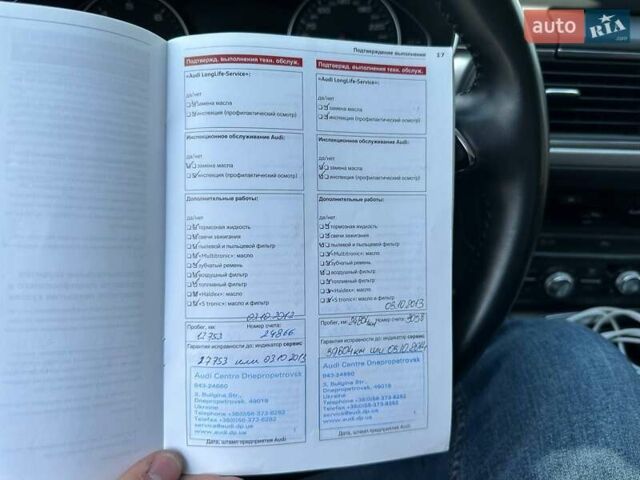 auto RIA .com
Подтверждение выполнения 17
Подтвержд. выполнения техн. обслуж.
«Audi LongLife-Service»:
да/нет
замена масла
инспекция (профилактический осмотр)
Инспекционное обслуживание Audi:
да/нет
замена масла
инспекция (профилактический осмотр)
Дополнительные работы:
да/нет
тормозная жидкость
свечи зажигания
пылевой и пыльцевой фильтр
«Multitronic»: масло
зубчатый ремень
воздушный фильтр
топливный фильтр
«Haldex»: масло
«S tronic»: масло и фильтр
03.10.2012
Пробег, км: Номер счета:
12753 24866
Гарантия исправности до: индикатор сервис
27753 или 03.10.2013
Audi Centre Dnepropetrovsk
943-24860
3, Bulgina Str.,
Dnepropetrovsk, 49018
Ukraine
Telephone +38(0)56-373-8282
Telefax +38(0)56-373-8282
service@audi.dp.ua
www.audi.dp.ua
Дата, штамп предприятия Audi
Подтвержд. выполнения техн. обслуж.
«Audi LongLife-Service»:
да/нет
замена масла
инспекция (профилактический осмотр)
Инспекционное обслуживание Audi:
да/нет
замена масла
инспекция (профилактический осмотр)
Дополнительные работы:
да/нет
тормозная жидкость
свечи зажигания
пылевой и пыльцевой фильтр
«Multitronic»: масло
зубчатый ремень
воздушный фильтр
топливный фильтр
«Haldex»: масло
«S tronic»: масло и фильтр
03.10.2013
Пробег, км: 24804км Номер счета: 9058
Гарантия исправности до: индикатор сервис
39804км или 03.10.2014
Audi Centre Dnepropetrovsk
943-24860
3, Bulgina Str.,
Dnepropetrovsk, 49018
Ukraine
Telephone +38(0)56-373-8282
Telefax +38(0)56-373-8282
service@audi.dp.ua
www.audi.dp.ua
Дата, штамп предприятия Audi